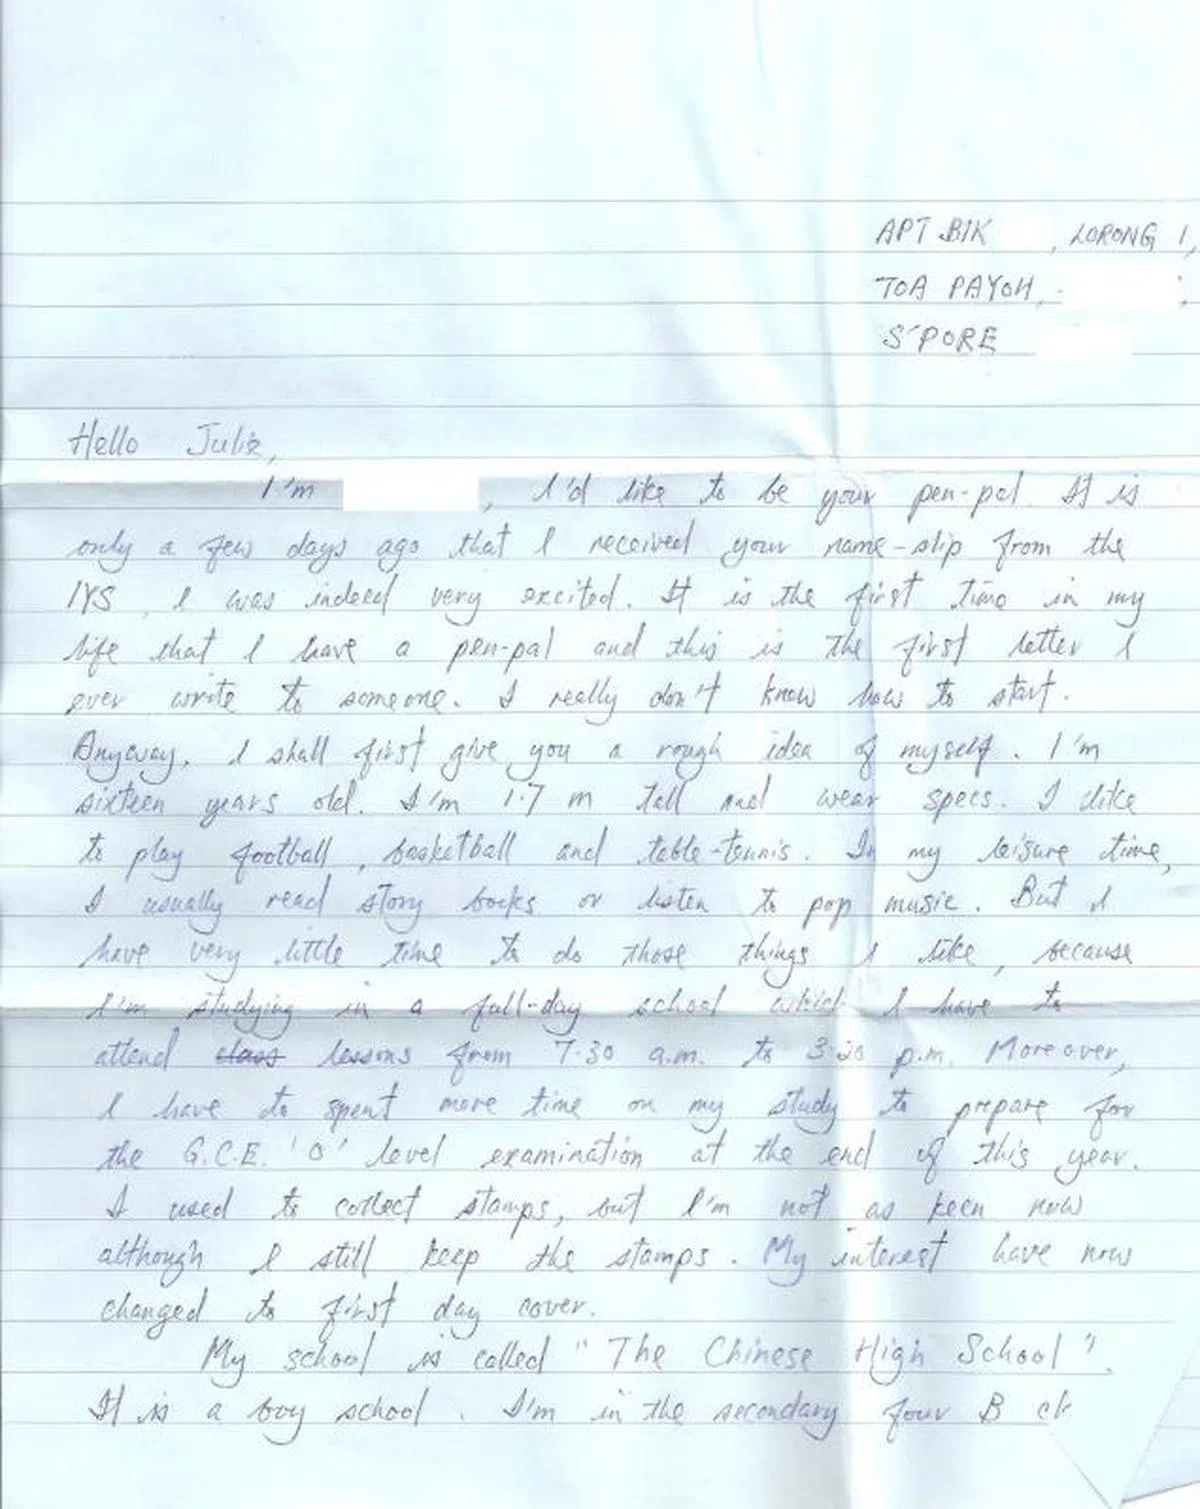 APT BlK , LORONG 1,
TOA PAYOH, ,
S'PORE
Hello Julie,
I'm , I'd like to be your pen-pal. It is
only a few days ago that I received your name-slip from the
IYS, I was indeed very excited. It is the first time in my
life that I have a pen-pal and this is the first letter I
ever write to someone. I really don't know how to start.
Anyway, I shall first give you a rough idea of myself. I'm
sixteen years old. I'm 1.7 m tall and wear specs. I like
to play football, basketball and table-tennis. In my leisure time,
I usually read story books or listen to pop music. But I
have very little time to do those things I like, because
I'm studying in a full-day school which I have to
attend class lessons from 7.30 a.m. to 3.20 p.m. Moreover,
I have to spent more time on my study to prepare for
the G.C.E. 'O' level examination at the end of this year.
I used to collect stamps, but I'm not as keen now
although I still keep the stamps. My interest have now
changed to first day cover.
My school is called "The Chinese High School".
It is a boy school. I'm in the secondary four B